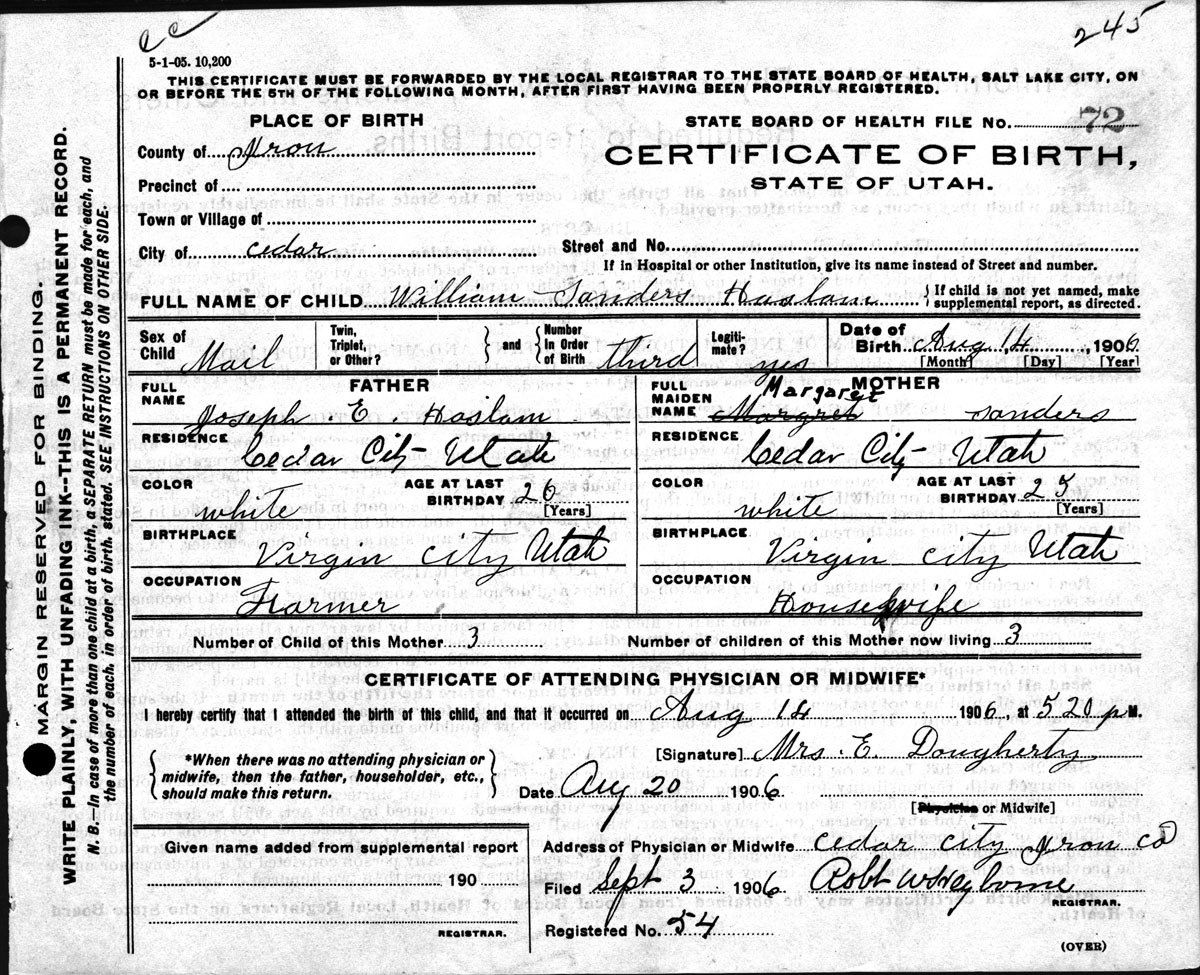 cc
245
5-1-05. 10,200
THIS CERTIFICATE MUST BE FORWARDED BY THE LOCAL REGISTRAR TO THE STATE BOARD OF HEALTH, SALT LAKE CITY, ON
OR BEFORE THE 5TH OF THE FOLLOWING MONTH, AFTER FIRST HAVING BEEN PROPERLY REGISTERED.
PLACE OF BIRTH
STATE BOARD OF HEALTH FILE No. 72
County of Iron
CERTIFICATE OF BIRTH,
STATE OF UTAH.
Precinct of
Town or Village of
City of cedar
Street and No.
If in Hospital or other Institution, give its name instead of Street and number.
FULL NAME OF CHILD William Sanders Haslam { If child is not yet named, make
supplemental report, as directed.
Sex of Child Mail
Twin, Triplet, or Other?
} and {
Number In Order of Birth third
Legiti-mate? yes
Date of Birth Aug 14, 1906
[Month] [Day] [Year]
FATHER
FULL NAME Joseph . E . Haslam
RESIDENCE Cedar City Utah
COLOR white
AGE AT LAST BIRTHDAY 26 [Years]
BIRTHPLACE Virgin City Utah
OCCUPATION Farmer
MOTHER
FULL MAIDEN NAME Margaret Margret Sanders
RESIDENCE Cedar City Utah
COLOR white
AGE AT LAST BIRTHDAY 25 [Years]
BIRTHPLACE Virgin City Utah
OCCUPATION Housewife
Number of Child of this Mother 3
Number of children of this Mother now living 3
CERTIFICATE OF ATTENDING PHYSICIAN OR MIDWIFE*
I hereby certify that I attended the birth of this child, and that it occurred on Aug 14 1906, at 5.20 pM.
[Signature] Mrs. E Dougherty
{ *When there was no attending physician or
midwife, then the father, householder, etc.,
should make this return. }
Date Aug 20 1906
[Physician or Midwife]
Given name added from supplemental report
190
REGISTRAR.
Address of Physician or Midwife Cedar City Iron co
Filed Sept 3 1906 Robt W Heyborne
REGISTRAR.
Registered No. 54
(OVER)
MARGIN RESERVED FOR BINDING.
WRITE PLAINLY, WITH UNFADING INK--THIS IS A PERMANENT RECORD.
N. B.—In case of more than one child at a birth, a SEPARATE RETURN must be made for each, and
the number of each, in order of birth, stated. SEE INSTRUCTIONS ON OTHER SIDE.